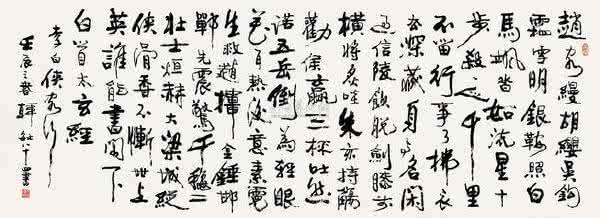 趙客縵胡纓吳鉤
霜雪明銀鞍照白
馬颯沓如流星十
步殺一人千里
不留行事了拂衣
去深藏身與名閑
過信陵飲脫劍膝前
橫將炙啖朱亥持觴
勸侯嬴三杯吐然
諾五岳倒為輕眼
花耳熱後意氣素霓
生救趙揮金錘邯
鄲先震驚千秋二
壯士烜赫大梁城縱
俠骨香不慚世上
英誰能書閣下
白首太玄經
李白俠客行
壬辰之春